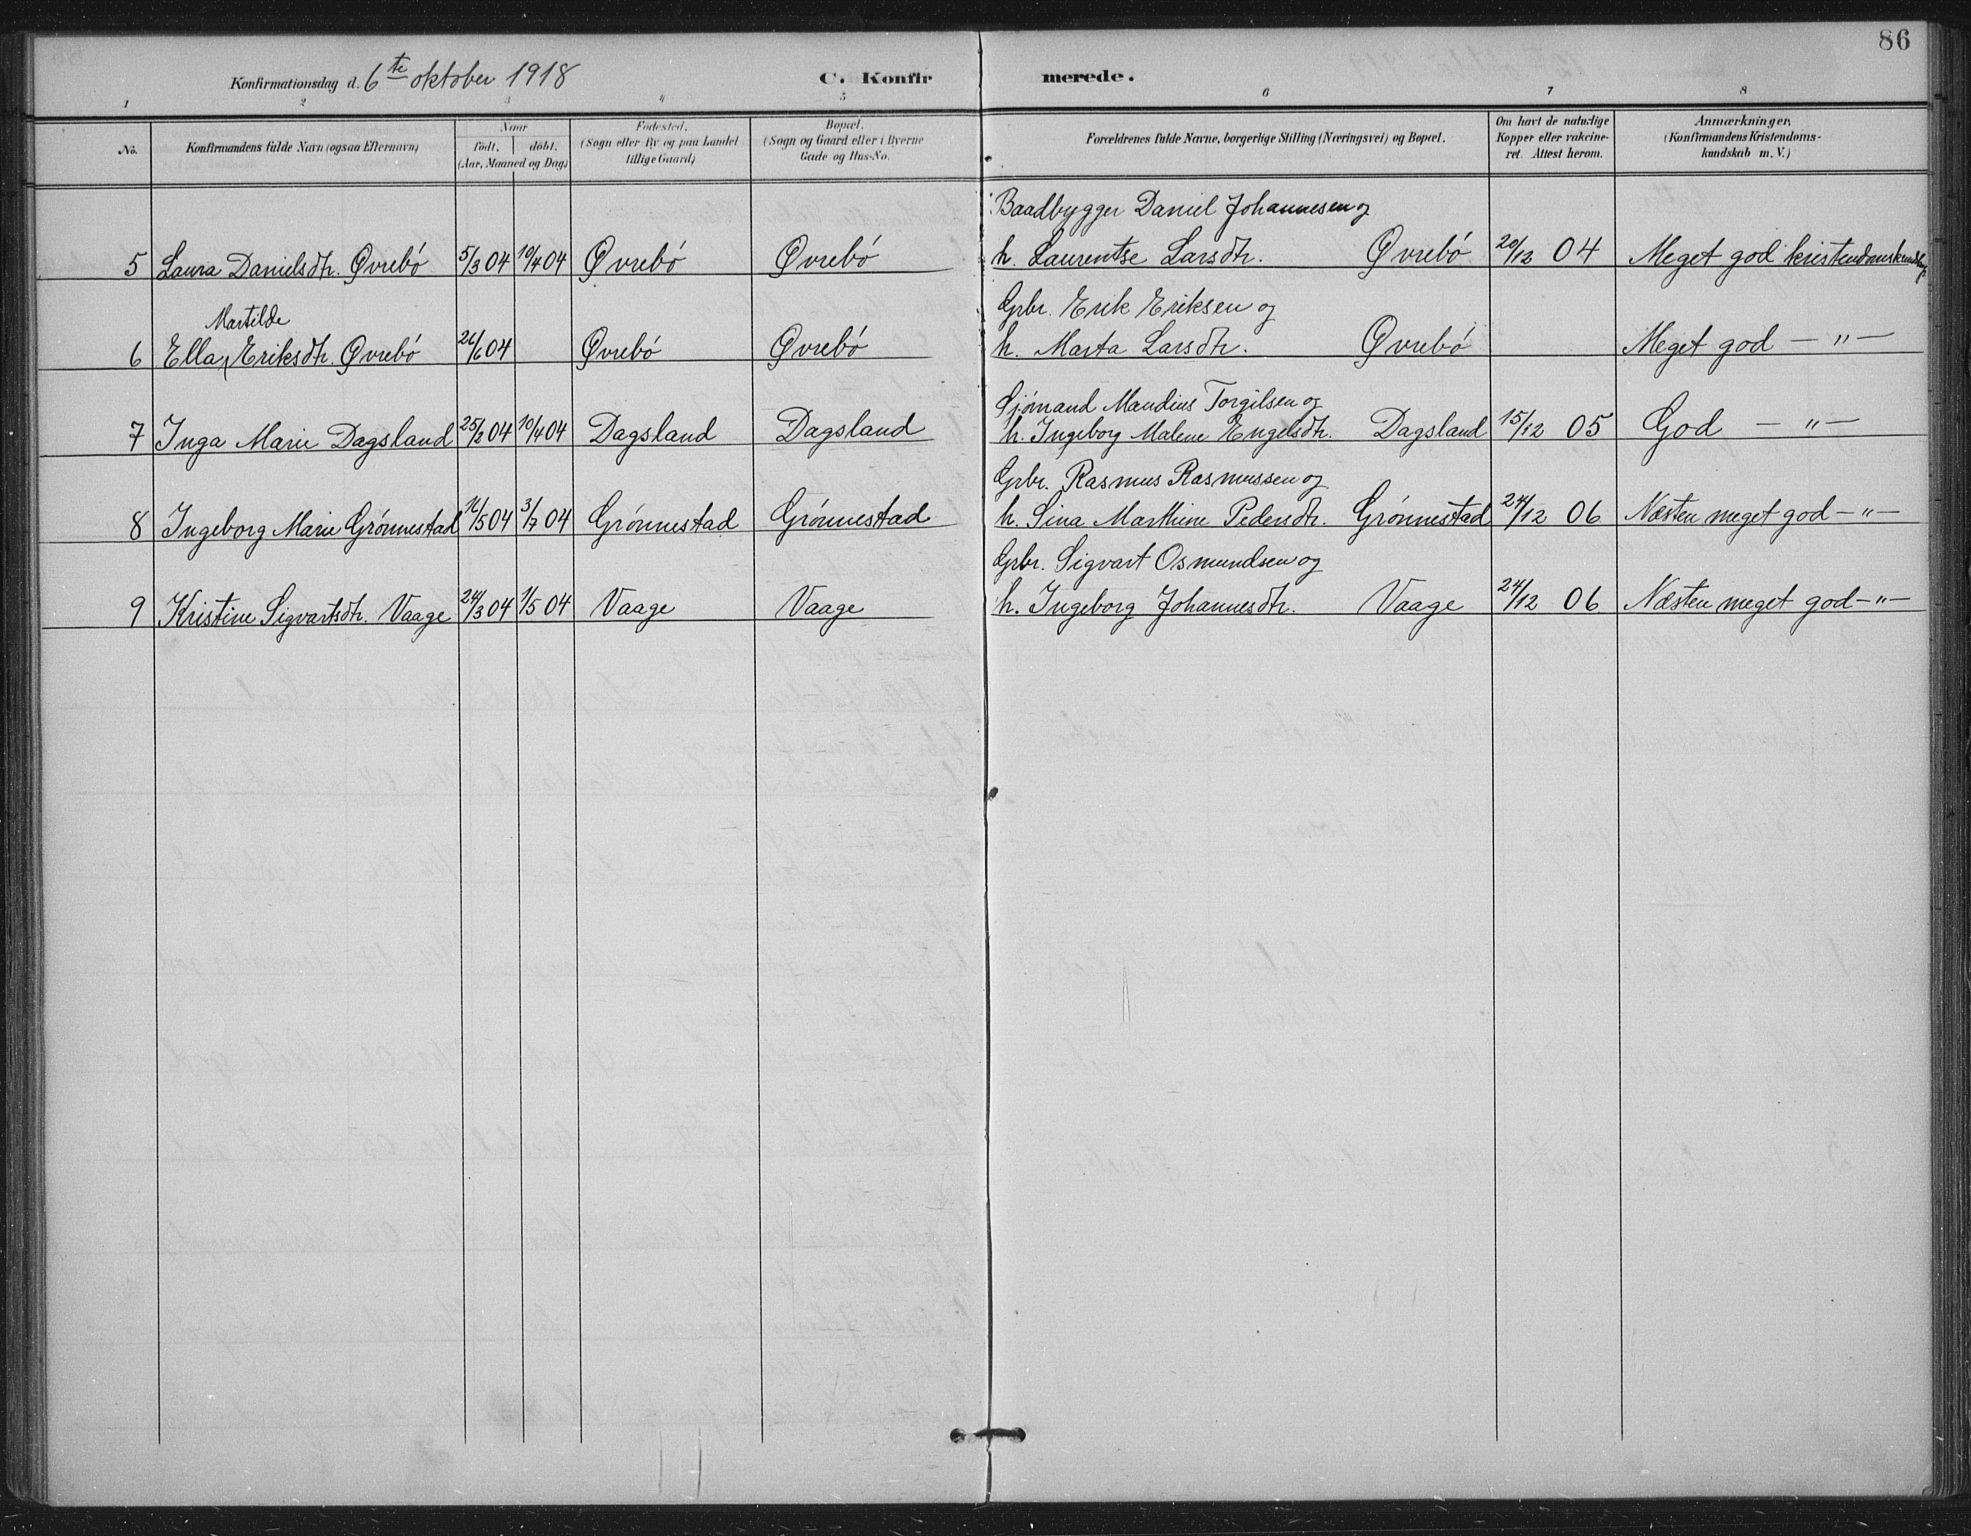 86
Konfirmationsdag d. 6te oktober 1918 C. Konfirmerede.
1 2 3 4 5 6 7 8
No. Konfirmandens fulde Navn (ogsaa Efternavn) Naar født. døbt. (Aar, Maaned og Dag) Fødested. (Sogn eller By og paa Landet tillige Gaard) Bopæl. (Sogn og Gaard eller i Byerne Gade og Hus-No. Forældrenes fulde Navne, borgerlige Stilling (Næringsvei) og Bopæl. Om havt de naturlige Kopper eller vakcineret. Attest herom. Anmærkninger, (Konfirmandens Kristendomskundskab m. V.)
Baadbygger Daniel Johannesen og
5 Laura Danielsdtr. Øvrebö 5/3 04 10/4 04 Øvrebö Øvrebö h. Laurentse Larsdtr. Øvrebö 20/12 04 Meget god kristendomskundskap
Martilde Gbr. Erik Eriksen og
6 Ella Eriksdtr. Øvrebö 26/6 04 Øvrebö Øvrebö h. Marta Larsdtr. Øvrebö Meget god — " —
Sjömand Mandius Torgilsen og
7 Inga Marie Dagsland 25/2 04 10/4 04 Dagsland Dagsland h. Ingeborg Malene Engelsdtr. Dagsland 15/12 05 God — " —
Gbr. Rasmus Rasmussen og
8 Ingeborg Marie Grönnestad 16/5 04 3/7 04 Grönnestad Grönnestad h. Sina Marthine Pedersdtr. Grönnestad 24/12 06 Næsten meget god — " —
Gbr. Sigvart Osmundsen og
9 Kristine Sigvartsdtr. Vaage 24/3 04 1/5 04 Vaage Vaage h. Ingeborg Johannesdtr. Vaage 24/12 06 Næsten meget god — " —